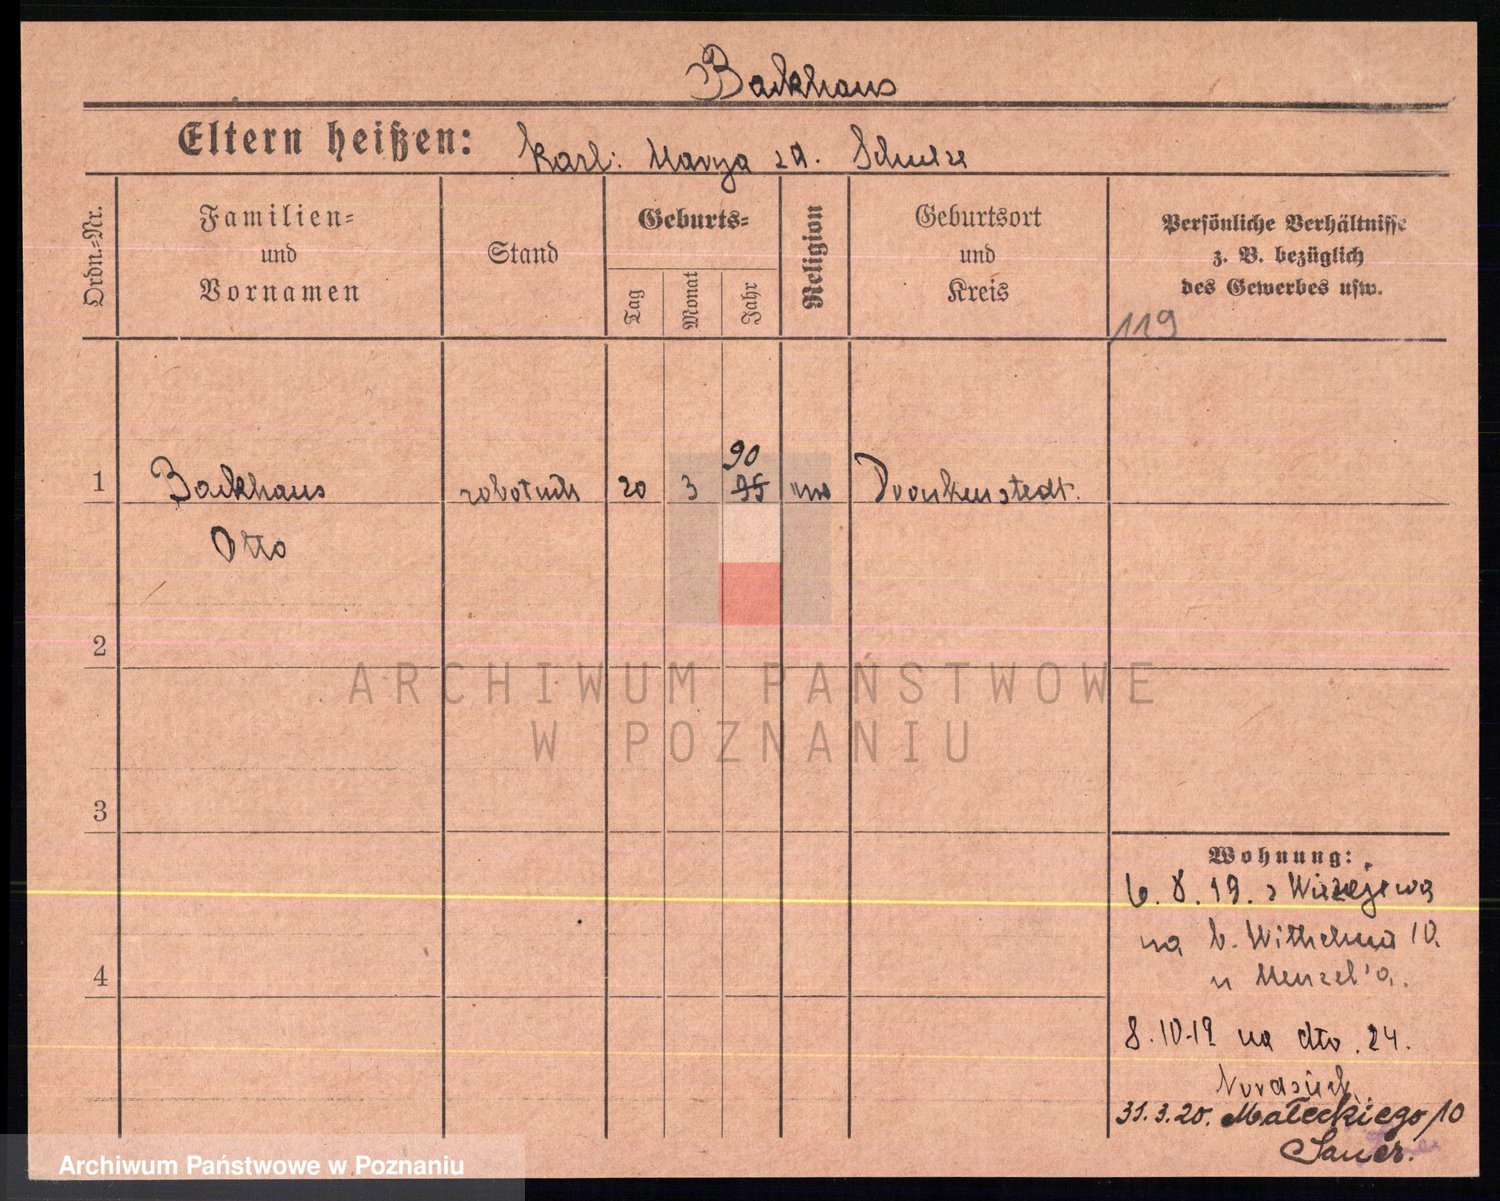 Backhaus
Eltern heißen: Karl: Marya zd. Schulze
Ordn.=Nr.
Familien=
und
Vornamen
Stand
Geburts=
Tag
Monat
Jahr
Religion
Geburtsort
und
Kreis
Persönliche Verhältnisse
z. B. bezüglich
des Gewerbes usw.
119
90
1 Backhaus robotnik 20 3 95
Otto
2
ARCHIWUM PAŃSTWOWE
W POZNANIU
3
Wohnung:
6. 8. 19. z Wirzejewa
na b. Wilhelma 10.
u Menzel'a.
4
8.10.19 na dto. 24.
31.3.20. Małeckiego 10
Sauer.
Archiwum Państwowe w Poznaniu